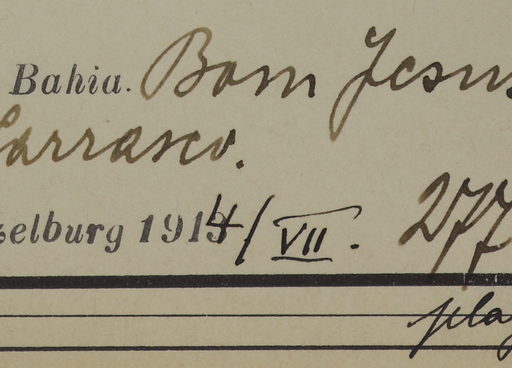 Bahia. Bom Jesus
Carrasco.
zelburg 1914/VII. 277
pla